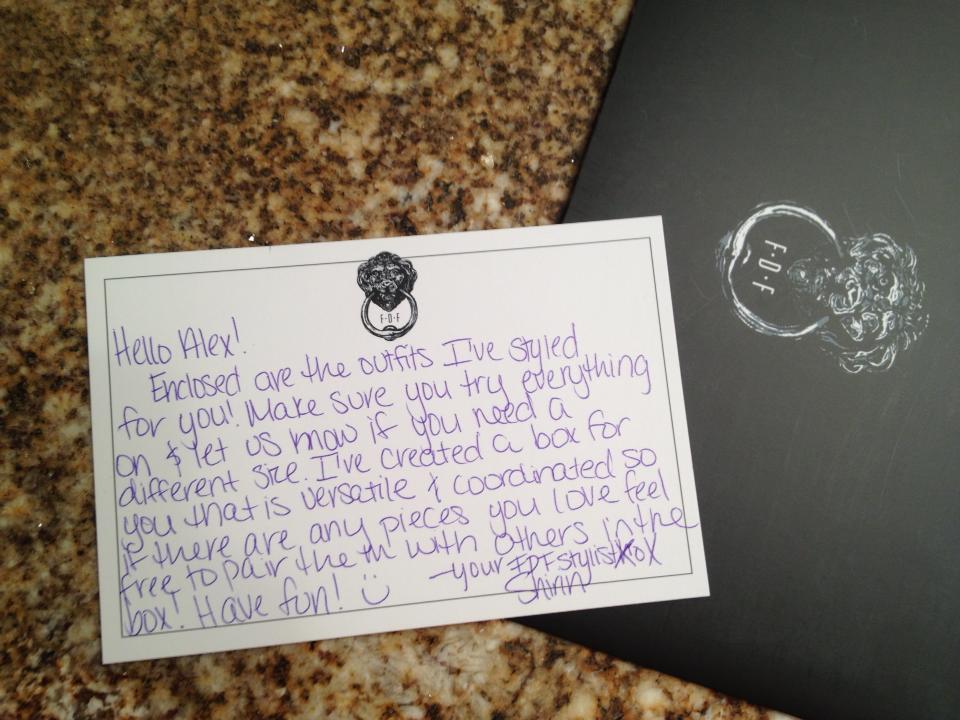 F·D·F
Hello Alex!
Enclosed are the outfits I've styled
for you! Make sure you try everything
on & let us know if you need a
different size. I've created a box for
you that is versatile & coordinated so
if there are any pieces you love feel
free to pair them with others in the
box! Have fun! :)
-your FDF stylist XOX
Shirin
F·D·F